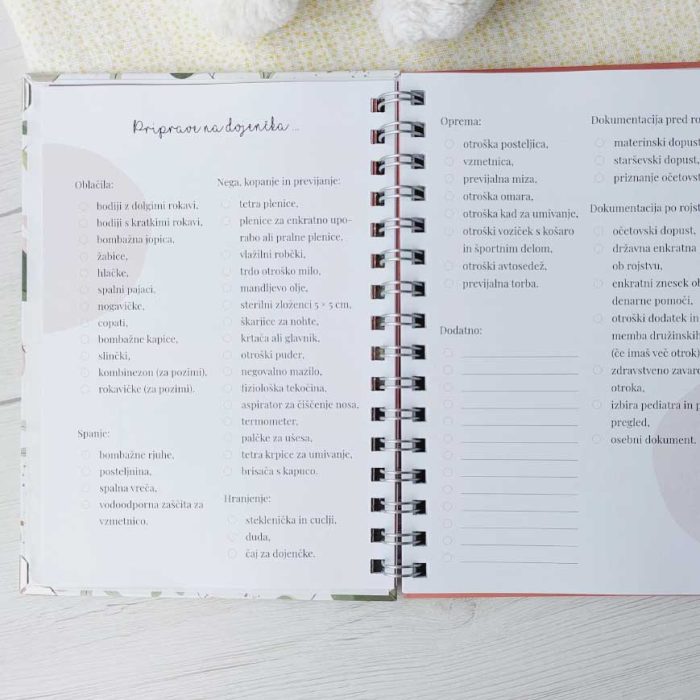 Priprave na dojenčka ...
Oblačila:
bodiji z dolgimi rokavi,
bodiji s kratkimi rokavi,
bombažna jopica,
žabice,
hlačke,
spalni pajaci,
nogavičke,
copati,
bombažne kapice,
slinčki,
kombinezon (za pozimi),
rokavičke (za pozimi).
Spanje:
bombažne rjuhe,
posteljnina,
spalna vreča,
vodoodporna zaščita za
vzmetnico.
Nega, kopanje in previjanje:
tetra plenice,
plenice za enkratno upo-
rabo ali pralne plenice,
vlažilni robčki,
trdo otroško milo,
mandljevo olje,
sterilni zloženci 5 × 5 cm,
škarjice za nohte,
krtača ali glavnik,
otroški puder,
negovalno mazilo,
fiziološka tekočina,
aspirator za čiščenje nosa,
termometer,
palčke za ušesa,
tetra krpice za umivanje,
brisača s kapuco.
Hranjenje:
steklenička in cuclji,
duda,
čaj za dojenčke.
Oprema:
otroška posteljica,
vzmetnica,
previjalna miza,
otroška omara,
otroška kad za umivanje,
otroški voziček s košaro
in športnim delom,
otroški avtosedež,
previjalna torba.
Dodatno:
Dokumentacija pred
materinski dopust
starševski dopust,
priznanje
Dokumentacija po
očetovski dopust,
državna enkratna
ob rojstvu,
enkratni znesek
denarne pomoči,
otroški dodatek in
družinskih
(če imaš več otrok)
zdravstveno
otroka,
izbira pediatra in
pregled,
osebni dokument.